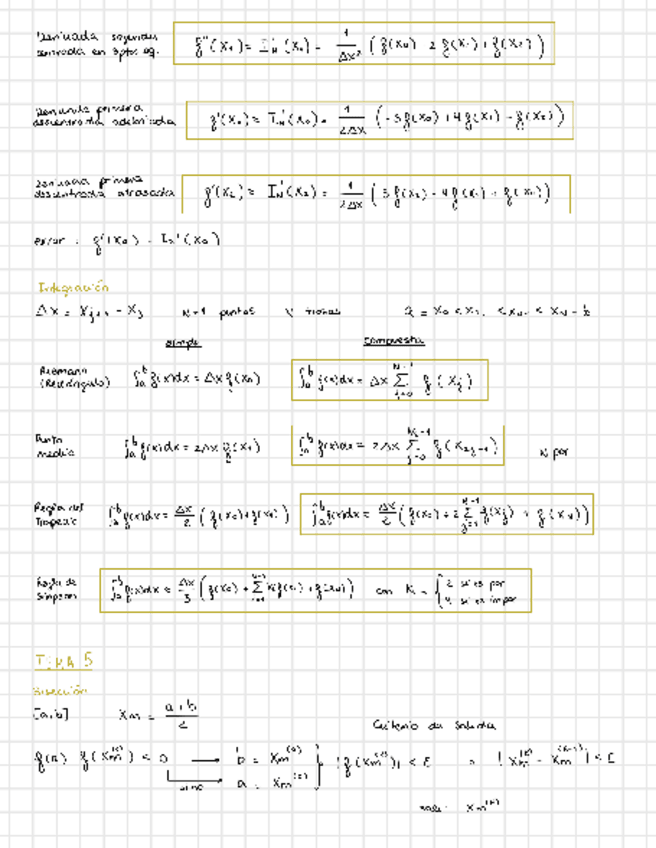 Derivada segunda centrada en 3ptos eq. f''(x₁) ≈ I''_N(x₁) = 1/Δx² (f(x₀) - 2f(x₁) + f(x₂))
Derivada primera descentrada adelantada f'(x₀) ≈ I'_N(x₀) = 1/2Δx (-3f(x₀) + 4f(x₁) - f(x₂))
Derivada primera descentrada atrasada f'(x₂) ≈ I'_N(x₂) = 1/2Δx (3f(x₂) - 4f(x₁) + f(x₀))
error: f'(x₀) - I_N'(x₀)
Integración
Δx = x_{j+1} - x_j N+1 puntos N trozos a = x₀ < x₁ < x_{N-1} < x_N = b
simple compuesta
Riemann (Rectángulo) ∫_a^b f(x)dx = Δx f(x₀) ∫_a^b f(x)dx = Δx Σ_{j=0}^{N-1} f(x_j)
Punto medio ∫_a^b f(x)dx = 2Δx f(x₁) ∫_a^b f(x)dx = 2Δx Σ_{j=0} f(x_{2j+1}) N par
Regla del Trapecio ∫_a^b f(x)dx = Δx/2 (f(x₀)+f(x₁)) ∫_a^b f(x)dx = Δx/2 (f(x₀) + 2 Σ_{j=1}^{N-1} f(x_j) + f(x_N))
Regla de Simpson ∫_a^b f(x)dx ≈ Δx/3 (f(x₀) + Σ_{i=1}^{N-1} K_i f(x_i) + f(x_N)) con K_i = { 2 si es par
4 si es impar
TEMA 5
Bisección
[a,b] x_m = (a+b)/2
Criterio de salida
f(a) f(x_m^{(k)}) < 0 → b = x_m^{(k)} } |f(x_m^{(k)})| < ε o |x_m^{(k)} - x_m^{(k-1)}| < ε
si no → a = x_m^{(k)}
x_m^{(k)}